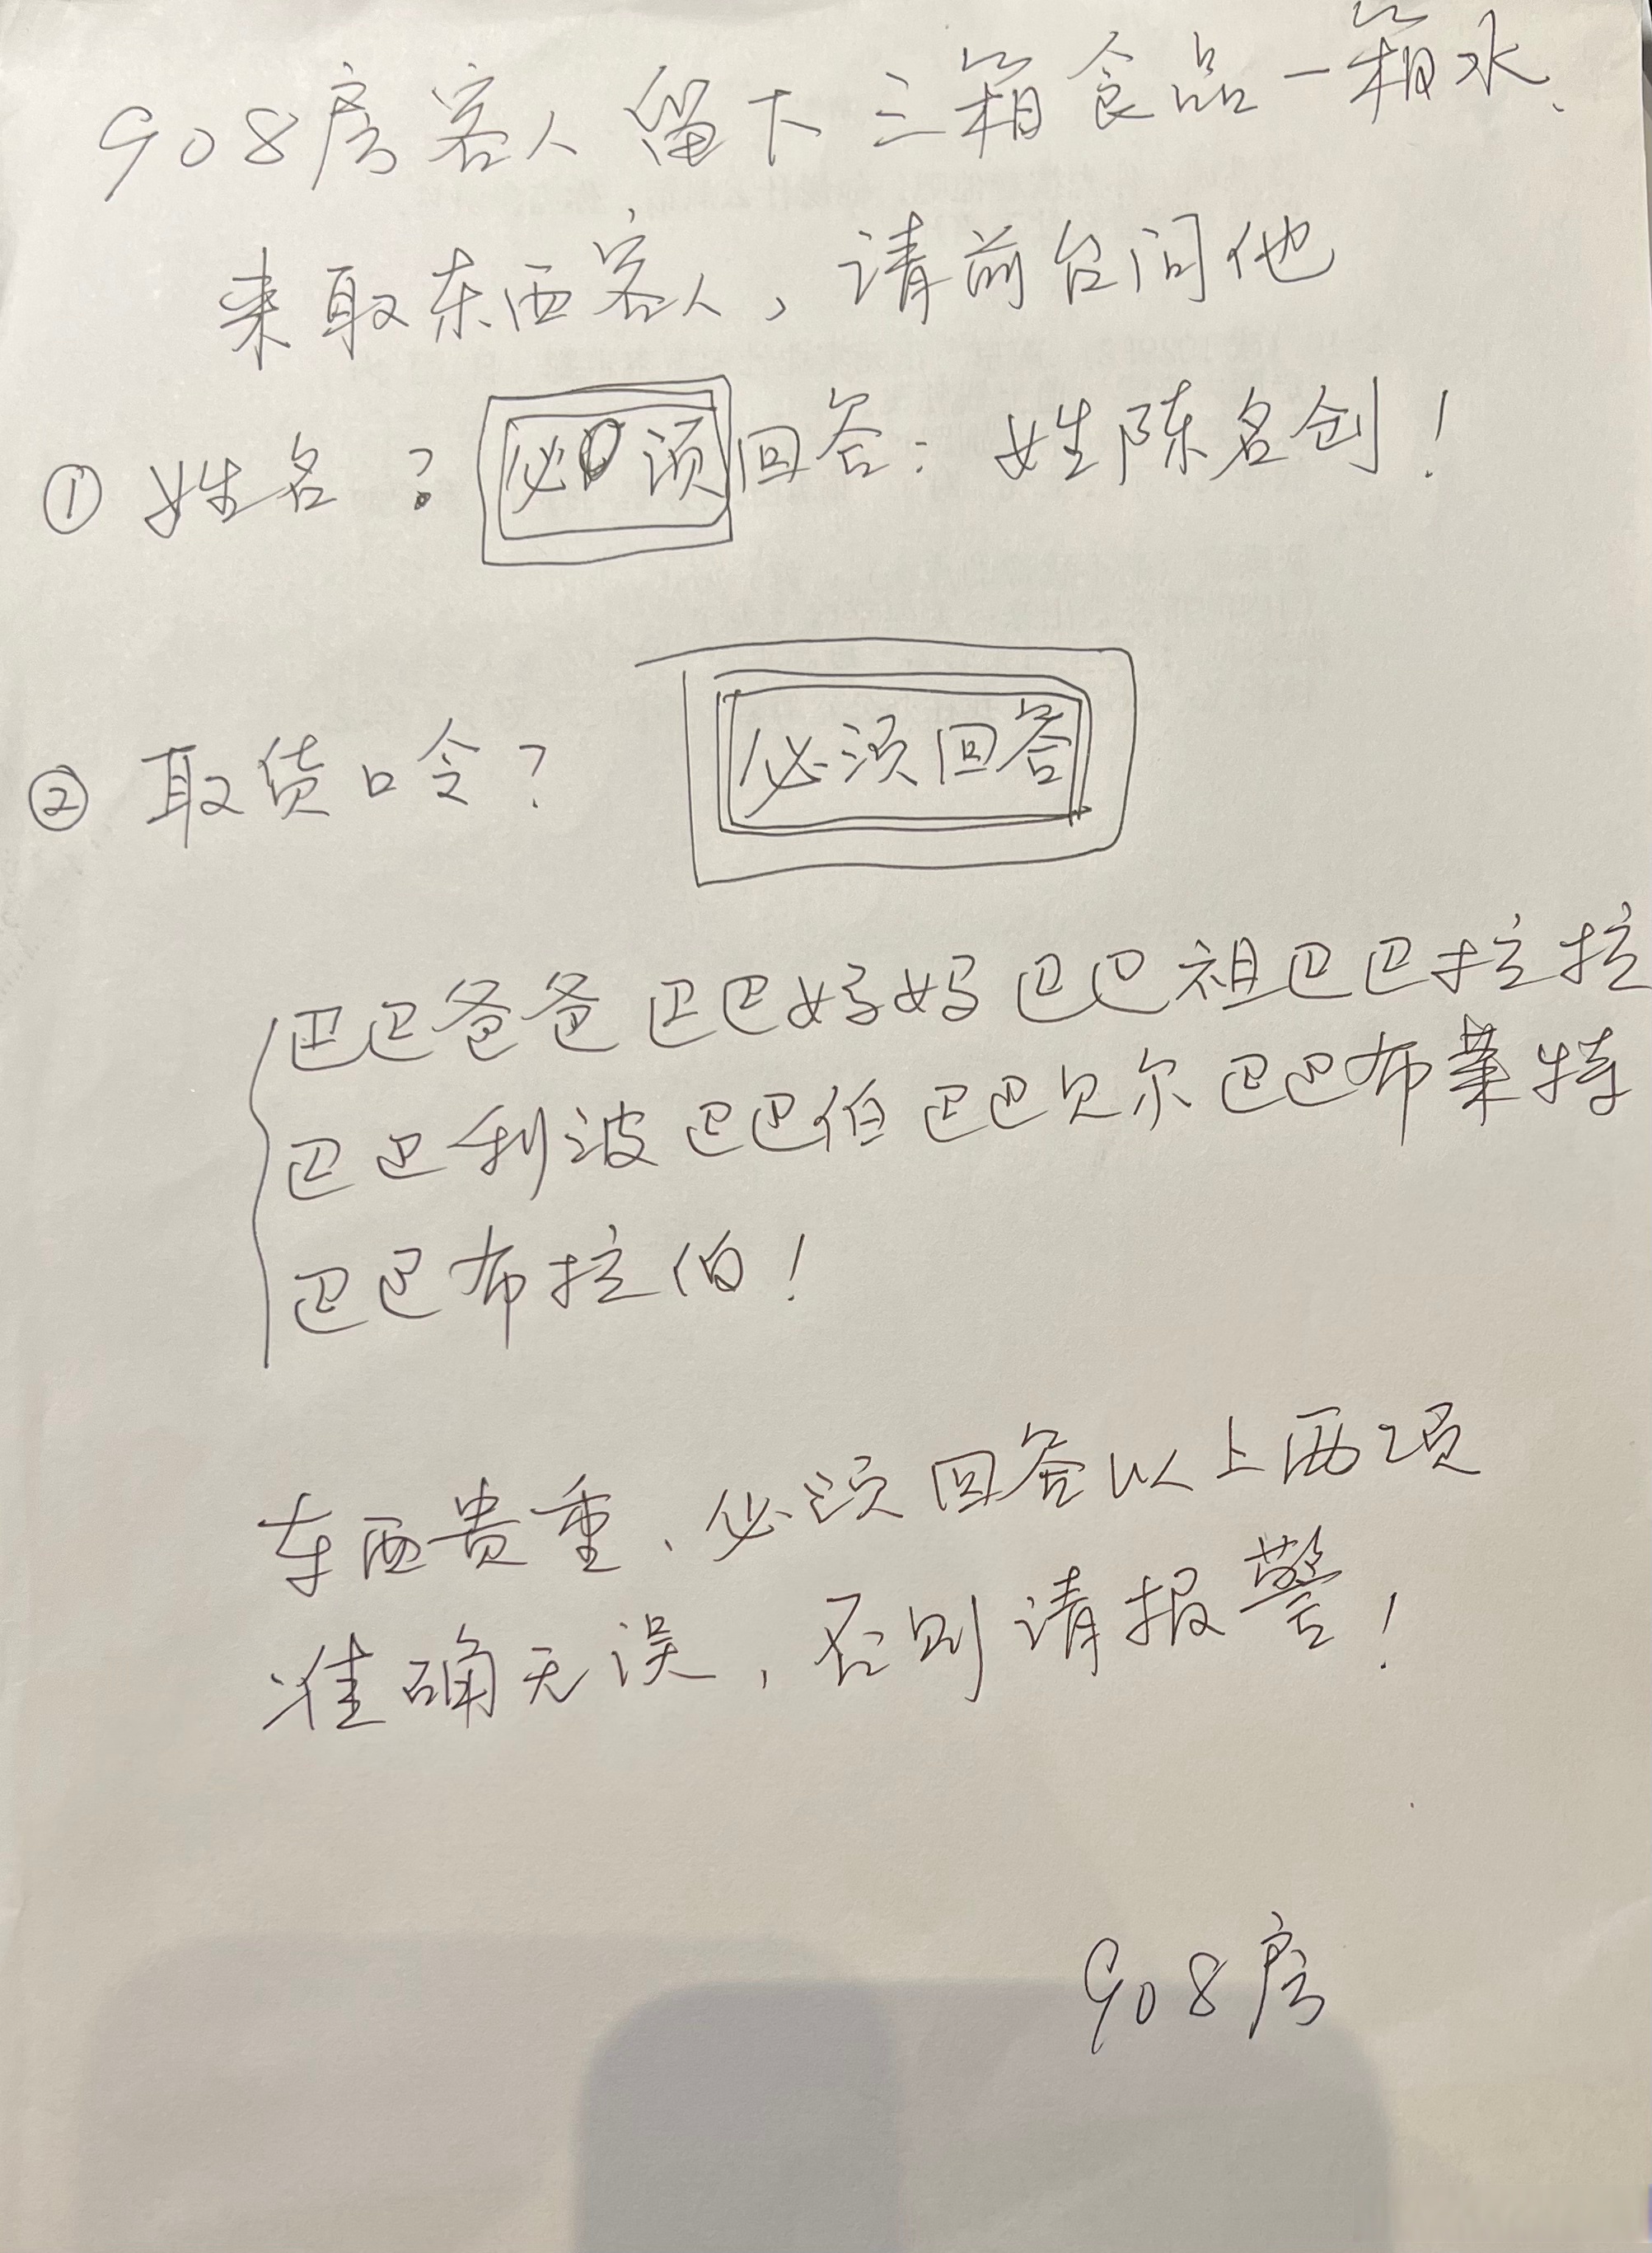 908房客人留下三箱食品一箱水、
来取东西客人，请前台问他
① 姓名？ 必须回答：姓陈名创！
② 取货口令？ 必须回答
巴巴爸爸巴巴妈妈巴巴祖巴巴拉拉
巴巴利波巴巴伯巴巴贝尔巴巴布莱特
巴巴布拉伯！
东西贵重、必须回答以上两项
准确无误，否则请报警！
908房